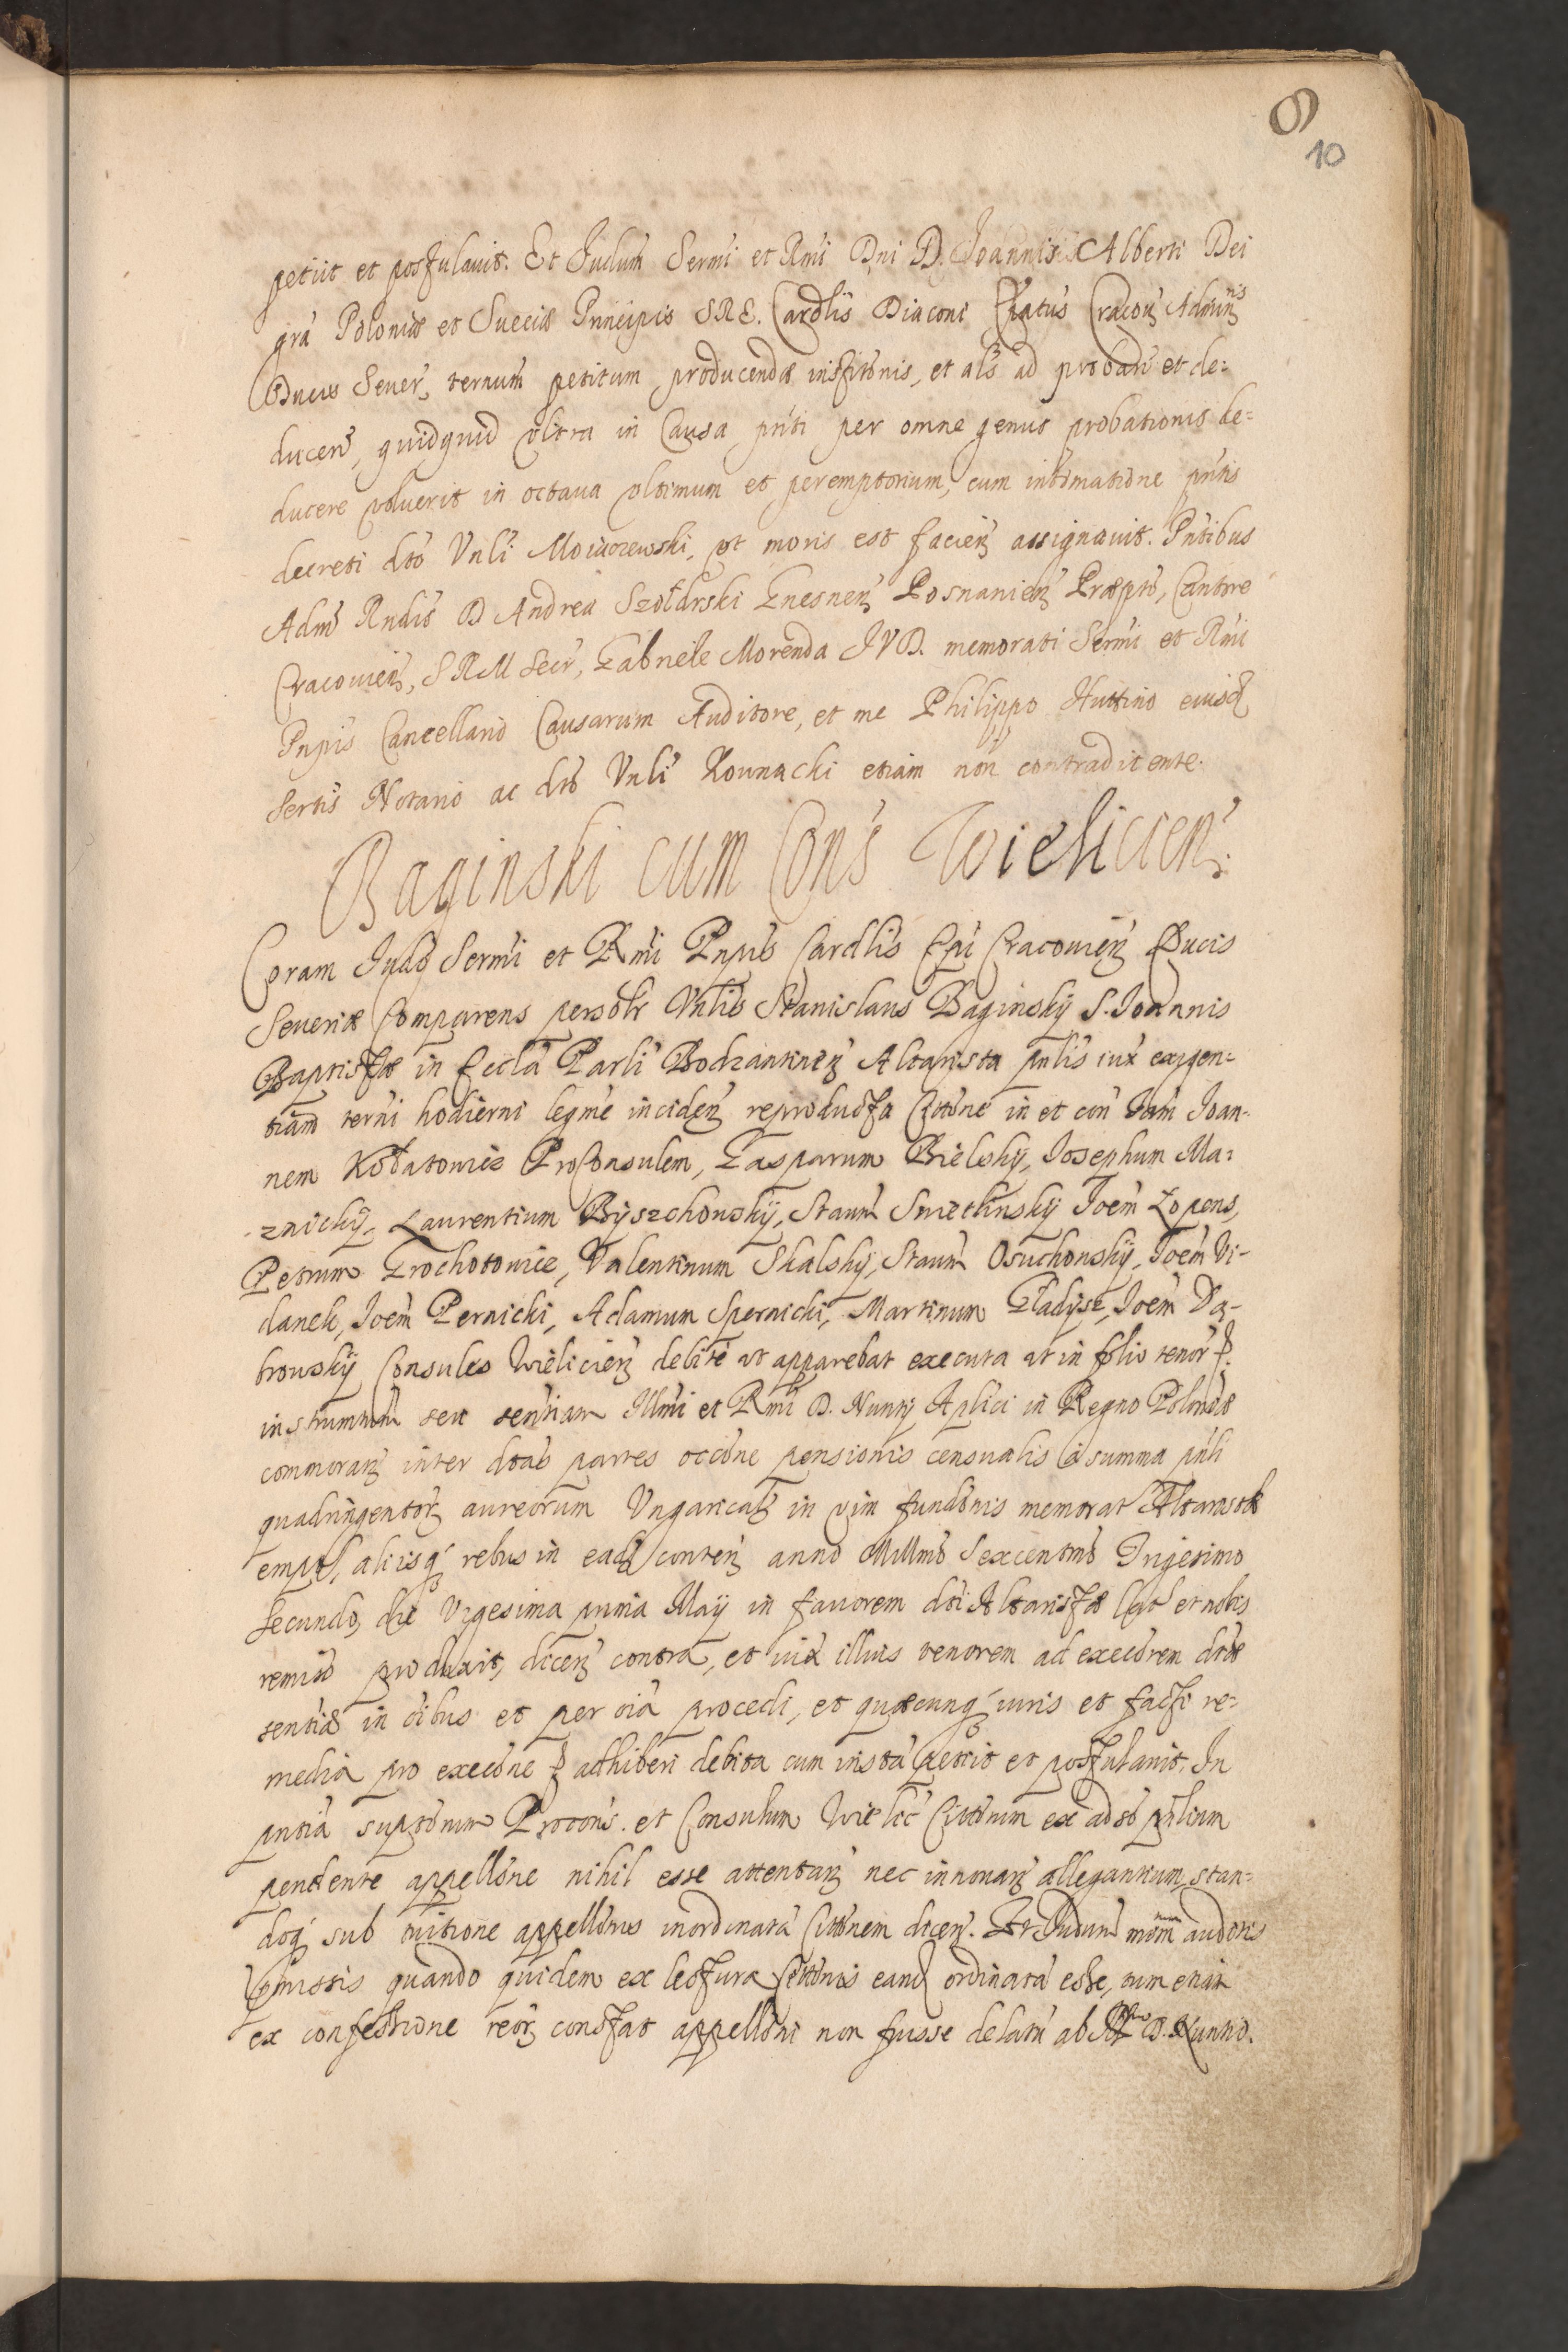 9
10
petiit et postulavit. Et Judum Sermi et Rmi Dni D. Joannis Alberti Dei
gra Poloniæ et Sueciæ Principis SRE. Cardlis Diaconi Epatus Cracou Admin
Ducis Seuer, ternum petitum producendæ insstonis, et als ad proband et de=
ducend, quidquid vltra in Causa pnti per omne genus probationis de=
ducere voluerit in octaua vltimum et peremptorium, cum intimatione pntis
decreti dto Vnli ut moris est facien assignauit. Pntibus
Adm Rndis D Andrea Szołdrski Gnesnen Posnanien Præpto, Cantore
Cracouien, SRM Secr, Gabriele Morenda JVD. memorati Sermi et Rmi
Pnpis Cancellario Causarum Auditore, et me Philippo Huttino eiusd
Sertis Notario ac dto Vnli Kounacki etiam non contradicente.
Baginski cum Cons Wieliicien:
Coram Judo Sermi et Rmi Pnpis Cardlis Epi Cracouien Ducis
Seueriæ Comparens personlr Vnlis Stanislaus Baginskij S. Joannis
Baptistæ in Eccla Parli Bodzantinen Altarista pnlis iux exigen=
tiam terni hodierni legme inciden reproducta Cittone in et con Joan-
nem ProConsulem, Gasparum Bielskij, Josephum Ma=
znickij, Laurentium Byszchonskij, Staum Smetlinskij Joem Zopens,
Petrum Grochotowicz, Valentinum Skalskij, Staum Osuchonskij, Joem Vi-
danek, Joem Pernicki, Adamum Spernicki, Martinum Gładysz, Joem Da-
brouskij Consules Wielicien debite vt apparebat executa vt in folio tenor
instrumtum seu sentiam Illmi et Rmi D. Nuntij Aplici in Regno Poloniæ
commoran inter dtas partes occone pensionis censualis a summa pnli
quadringentor aureorum Vngarical in vim fundonis memorat Altaristæ
empt, aliisq rebus in ead conten anno Millmo Sexcentmo Trigesimo
secundo, die Vigesima prima Maij in fauorem dti Altaristæ lat et nobis
remiss produxit, dicen contra, et iux illius tenorem ad execorem dtæ
sentiæ in oibus et per oia procedi, et quæcunq iuris et facti re=
media pro execone adhiberi debita cum insta petiit et postulauit. In
pntia suptorum Procons. et Consulum Wielic Cittorum ex adso
pendente appellone nihil esse attentan nec innouan allegantium, stan=
doq sub tuitione appellonis inordinata Cittonem dicen. Et Judum auditis
quando quidem ex lectura Cittonis eand ordinata esse, tum etiam
ex confessione reor constat appelloni non fuisse delatm ab D. Nuntio.